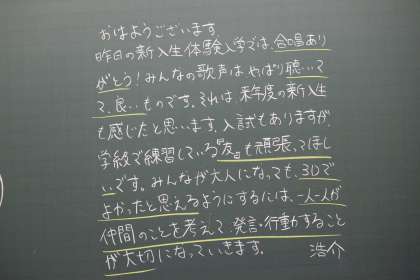 おはようございます。
昨日の新入生体験入学では、合唱あり
がとう！みんなの歌声はやっぱり聴いて
て、良いものです。それは来年度の新入生
も感じたと思います。入試もありますが、
学級で練習している『友』も頑張ってほし
いです。みんなが大人になっても、3Dで
よかったと思えるようにするには、一人一人が
仲間のことを考えて、発言・行動すること
が大切になっていきます。 浩介